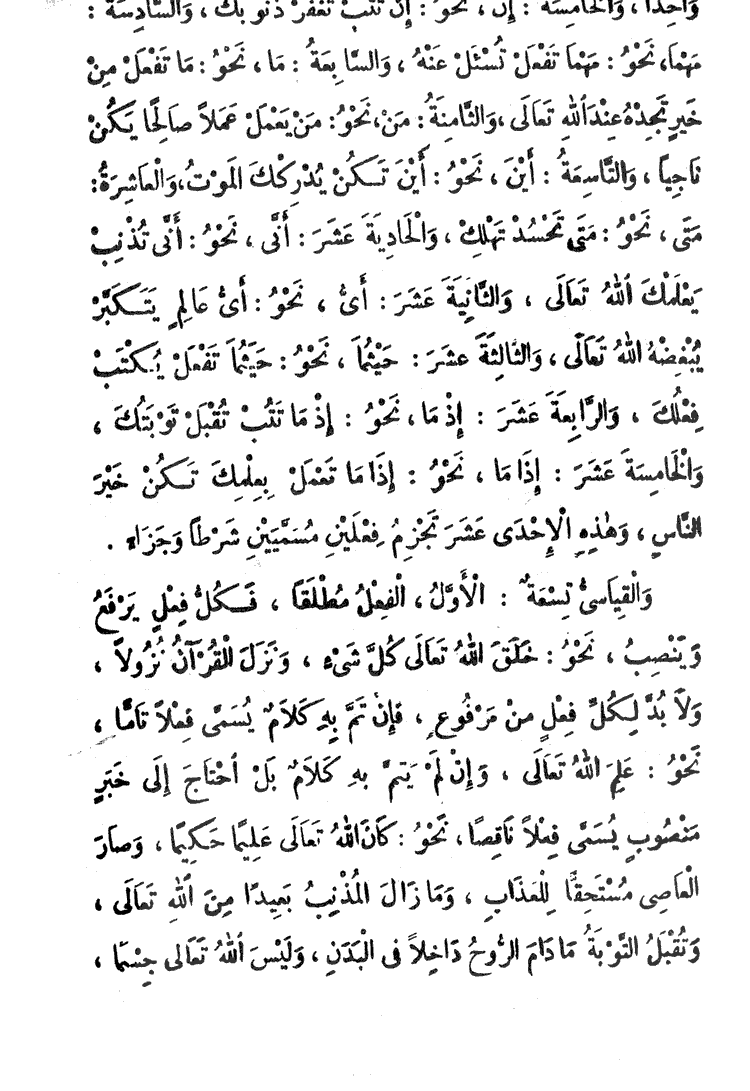 وَاحِدًا ، وَالْخَامِسَةُ : إِنْ ، نَحْوُ : إِنْ تَتُبْ تُغْفَرْ ذُنُوبُكَ ، وَالسَّادِسَةُ :
مَهْمَا، نَحْوُ : مَهْمَا تَفْعَلْ تُسْئَلْ عَنْهُ ، وَالسَّابِعَةُ : مَا ، نَحْوُ : مَا تَفْعَلْ مِنْ
خَيْرٍ تَجِدْهُ عِنْدَ اللهِ تَعَالَى ،وَالثَّامِنَةُ : مَنْ، نَحْوُ: مَنْ يَعْمَلْ عَمَلاً صَالِحًا يَكُنْ
نَاجِياً ، وَالتَّاسِعَةُ : أَيْنَ ، نَحْوُ : أَيْنَ تَكُنْ يُدْرِكْكَ الْمَوْتُ،وَالْعَاشِرَةُ:
مَتَى ، نَحْوُ : مَتَى تَحْسُدْ تَهْلِكْ ، وَالْحَادِيَةَ عَشَرَ : أَنَّى ، نَحْوُ : أَنَّى تُذْنِبْ
يَعْلَمْكَ اللهُ تَعَالَى ، وَالثَّانِيَةَ عَشَرَ : أَىُّ ، نَحْوُ : أَىُّ عَالِمٍ يَتَكَبَّرْ
يُبْغِضْهُ اللهُ تَعَالَى ، وَالثَّالِثَةَ عَشَرَ : حَيْثُمَا ، نَحْوُ : حَيْثُمَا تَفْعَلْ يُكْتَبْ
فِعْلُكَ ، وَالرَّابِعَةَ عَشَرَ : إِذْ مَا ، نَحْوُ : إِذْ مَا تَتُبْ تُقْبَلْ تَوْبَتُكَ ،
وَالْخَامِسَةَ عَشَرَ : إِذَا مَا ، نَحْوُ : إِذَا مَا تَعْمَلْ بِعِلْمِكَ تَكُنْ خَيْرَ
النَّاسِ ، وَهٰذِهِ الْإِحْدَى عَشَرَ تَجْزِمُ فِعْلَيْنِ مُسَمَّيَيْنِ شَرْطاً وَجَزَاءً .
وَالْقِيَاسِىُّ تِسْعَةٌ : الْأَوَّلُ ، الْفِعْلُ مُطْلَقًا ، فَكُلُّ فِعْلٍ يَرْفَعُ
وَيَنْصِبُ ، نَحْوُ : خَلَقَ اللهُ تَعَالَى كُلَّ شَىْءٍ ، وَنَزَلَ الْقُرْآنُ نُزُولاً ،
وَلاَ بُدَّ لِكُلِّ فِعْلٍ مِنْ مَرْفُوعٍ ، فَإِنْ تَمَّ بِهِ كَلاَمٌ يُسَمَّى فِعْلاً تَامًّا ،
نَحْوُ : عَلِمَ اللهُ تَعَالَى ، وَإِنْ لَمْ يَتِمَّ بِهِ كَلاَمٌ بَلْ احْتَاجَ إِلَى خَبَرٍ
مَنْصُوبٍ يُسَمَّى فِعْلاً نَاقِصًا ، نَحْوُ : كَانَ اللهُ تَعَالَى عَلِيمًا حَكِيمًا ، وَصَارَ
الْعَاصِى مُسْتَحِقًّا لِلْعَذَابِ ، وَمَا زَالَ الْمُذْنِبُ بَعِيدًا مِنَ اللهِ تَعَالَى ،
وَتُقْبَلُ التَّوْبَةُ مَا دَامَ الرُّوحُ دَاخِلاً فِى الْبَدَنِ ، وَلَيْسَ اللهُ تَعَالَى جِسْمًا ،